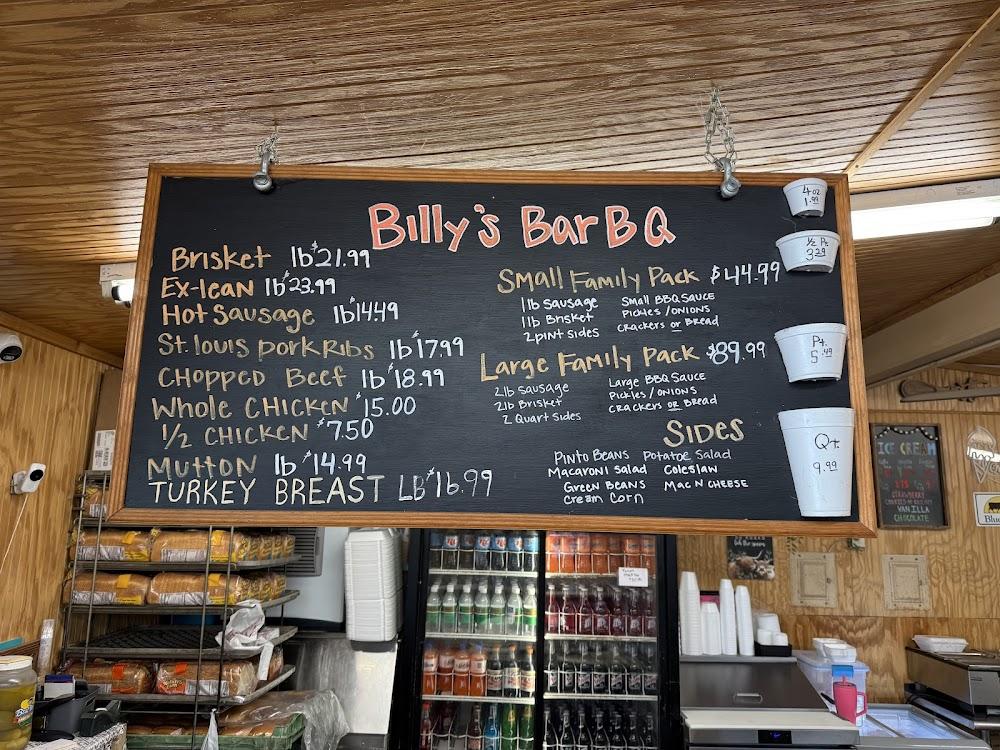 Billy's BarBQ
Brisket lb $21.99
Ex-lean lb $23.99
Hot Sausage lb $14.49
St. louis pork Ribs lb $17.99
CHopped Beef lb $18.99
Whole CHICKEN $15.00
1/2 CHICKEN $7.50
Mutton lb $14.99
TURKEY BREAST LB $16.99
Small Family Pack $44.99
1lb Sausage Small BBQ SAUCE
1lb Brisket Pickles/ONIONS
2 pint sides crackers or Bread
Large Family Pack $89.99
2lb Sausage Large BBQ SAUCE
2lb Brisket Pickles/ONIONS
2 Quart Sides crackers or Bread
SIDES
Pinto Beans Potatoe Salad
Macaroni Salad Coleslaw
Green Beans Mac N CHEESE
Cream Corn
4 oz
1.99
1/2 Pt.
3.29
Pt.
5.49
Qt.
9.99
ICE CREAM
STRAWBERRY
VANILLA
CHOCOLATE
Blue